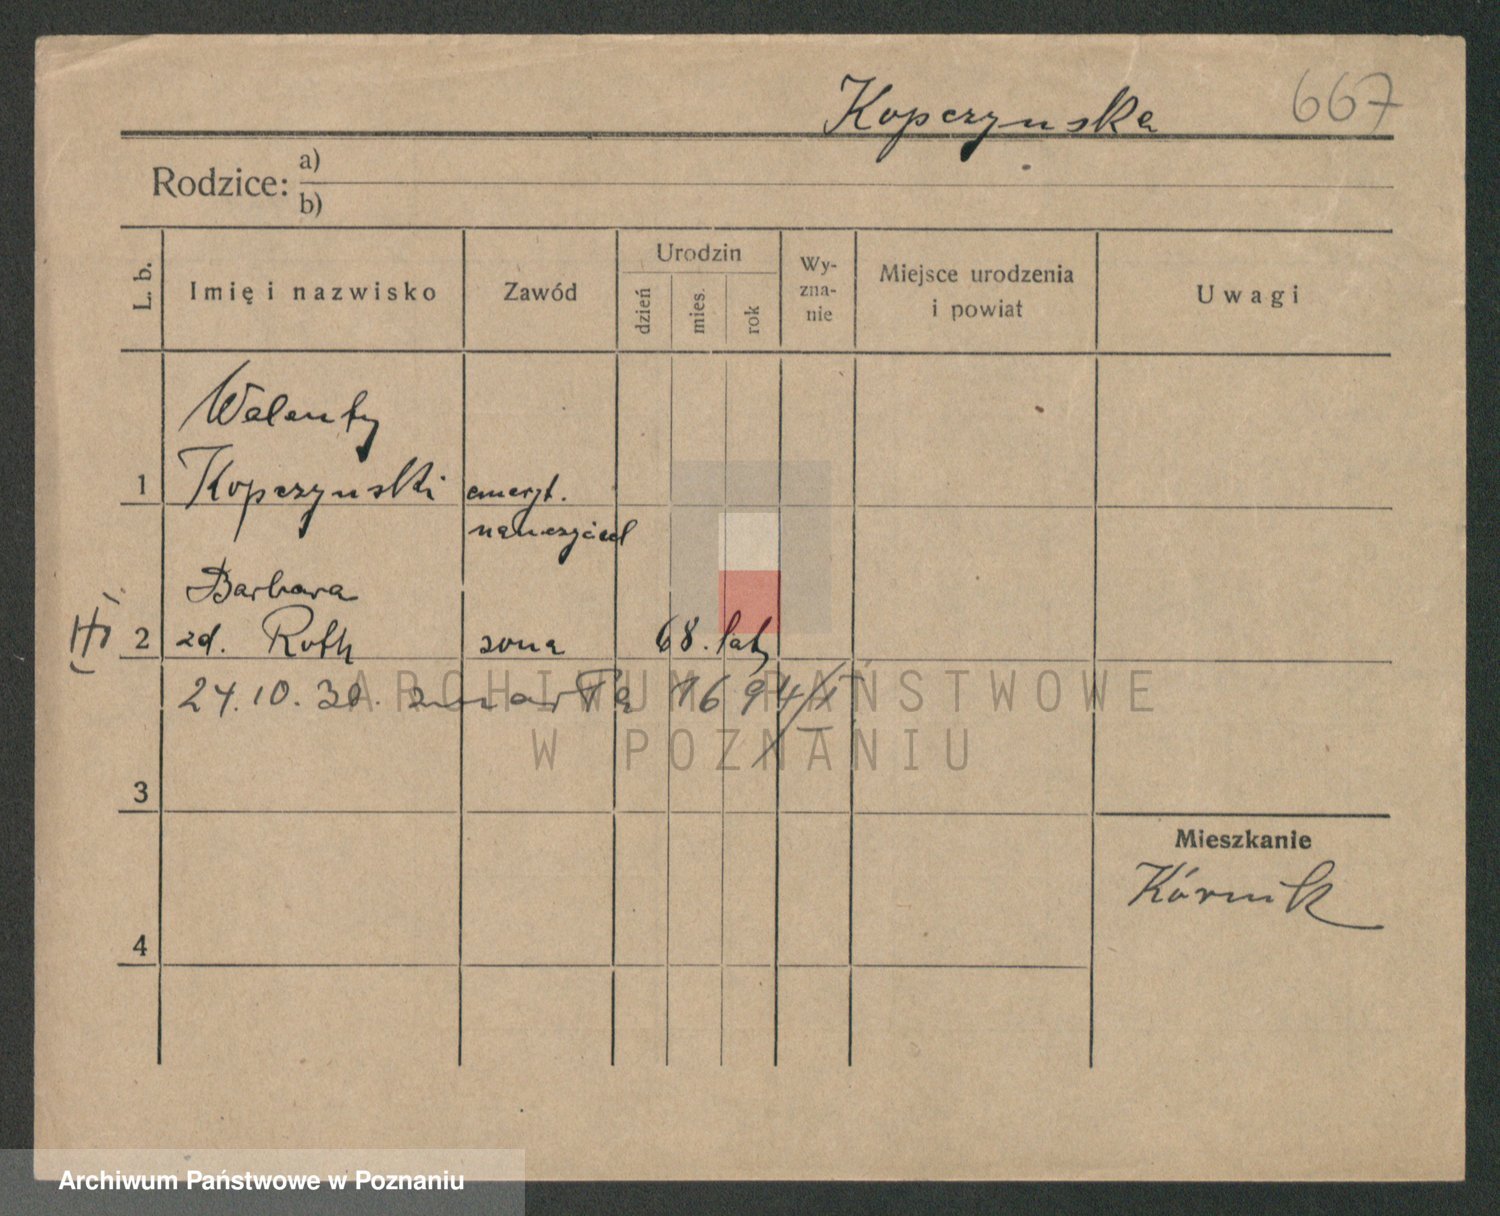 Kopczynska 667
Rodzice: a)
b)
L. b. Imię i nazwisko Zawód Urodzin dzień mies. rok Wy-zna-nie Miejsce urodzenia i powiat Uwagi
Walenty
1 Kopczynski emeryt.
nauczyciel
Barbara
2 zd. Roth żona 68. laty
24.10.30. zmarła 1694/I
ARCHIWUM PAŃSTWOWE
W POZNANIU
3
Mieszkanie
Kórnik
4
Archiwum Państwowe w Poznaniu